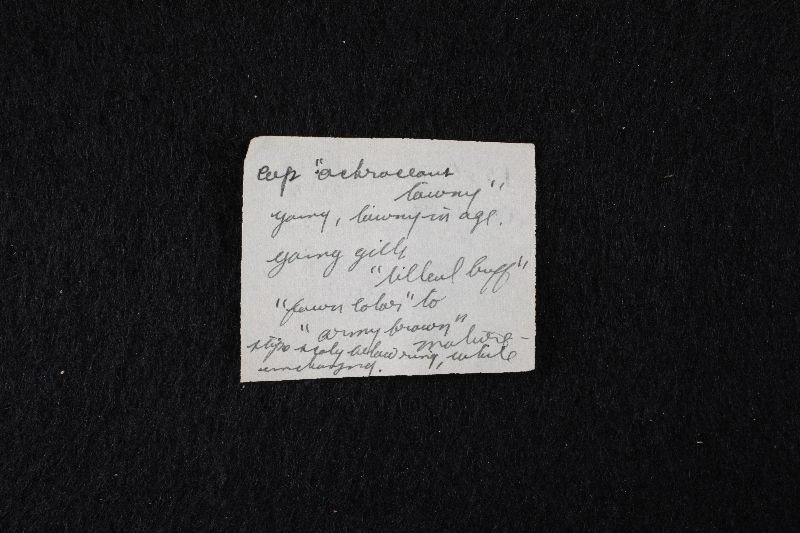 cap "ochraceous
tawny"
young, tawny in age.
young gills
"tilleul buff"
"fawn color" to
"army brown"
mature -
stipe scaly below ring, white
unchanging.